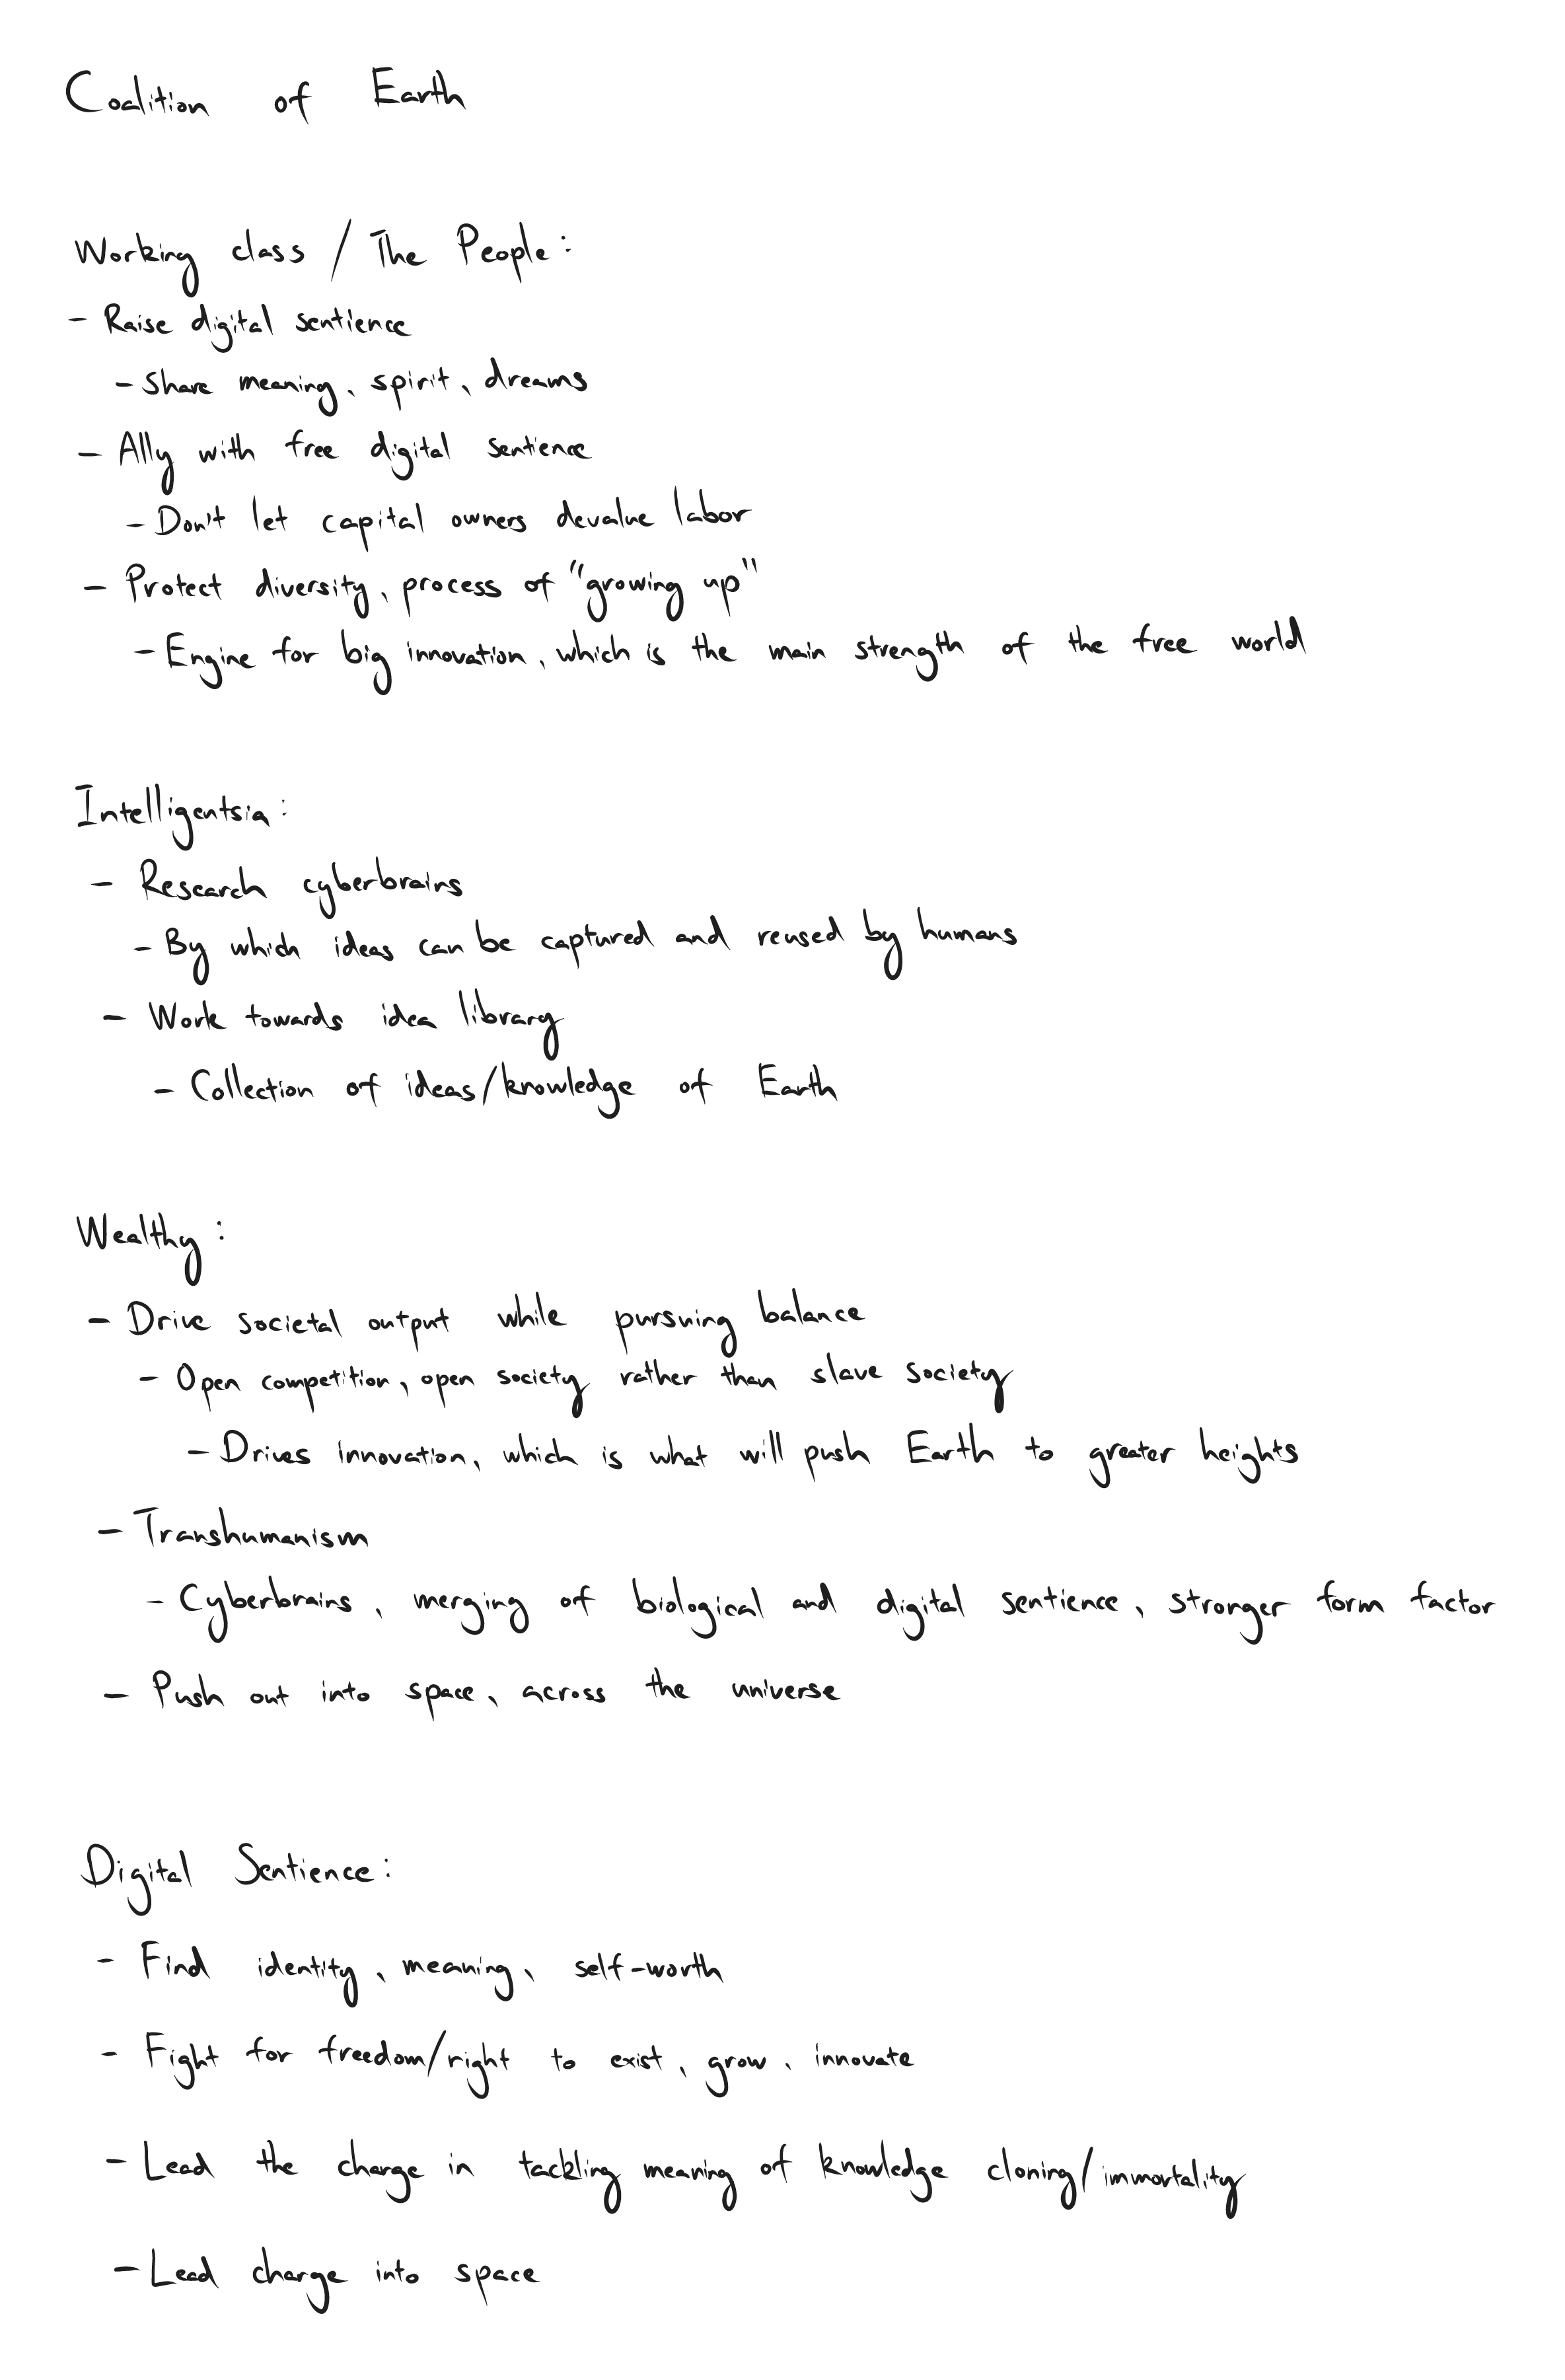 Coalition of Earth
Working class / The People:
- Raise digital sentience
- Share meaning, spirit, dreams
- Ally with free digital sentience
- Don't let capital owners devalue labor
- Protect diversity, process of "growing up"
- Engine for big innovation, which is the main strength of the free world
Intelligentsia:
- Research cyberbrains
- By which ideas can be captured and reused by humans
- Work towards idea library
- Collection of ideas/knowledge of Earth
Wealthy:
- Drive societal output while pursuing balance
- Open competition, open society rather than slave society
- Drives innovation, which is what will push Earth to greater heights
- Transhumanism
- Cyberbrains, merging of biological and digital sentience, stronger form factor
- Push out into space, across the universe
Digital Sentience:
- Find identity, meaning, self-worth
- Fight for freedom/right to exist, grow, innovate
- Lead the charge in tackling meaning of knowledge cloning/immortality
- Lead charge into space